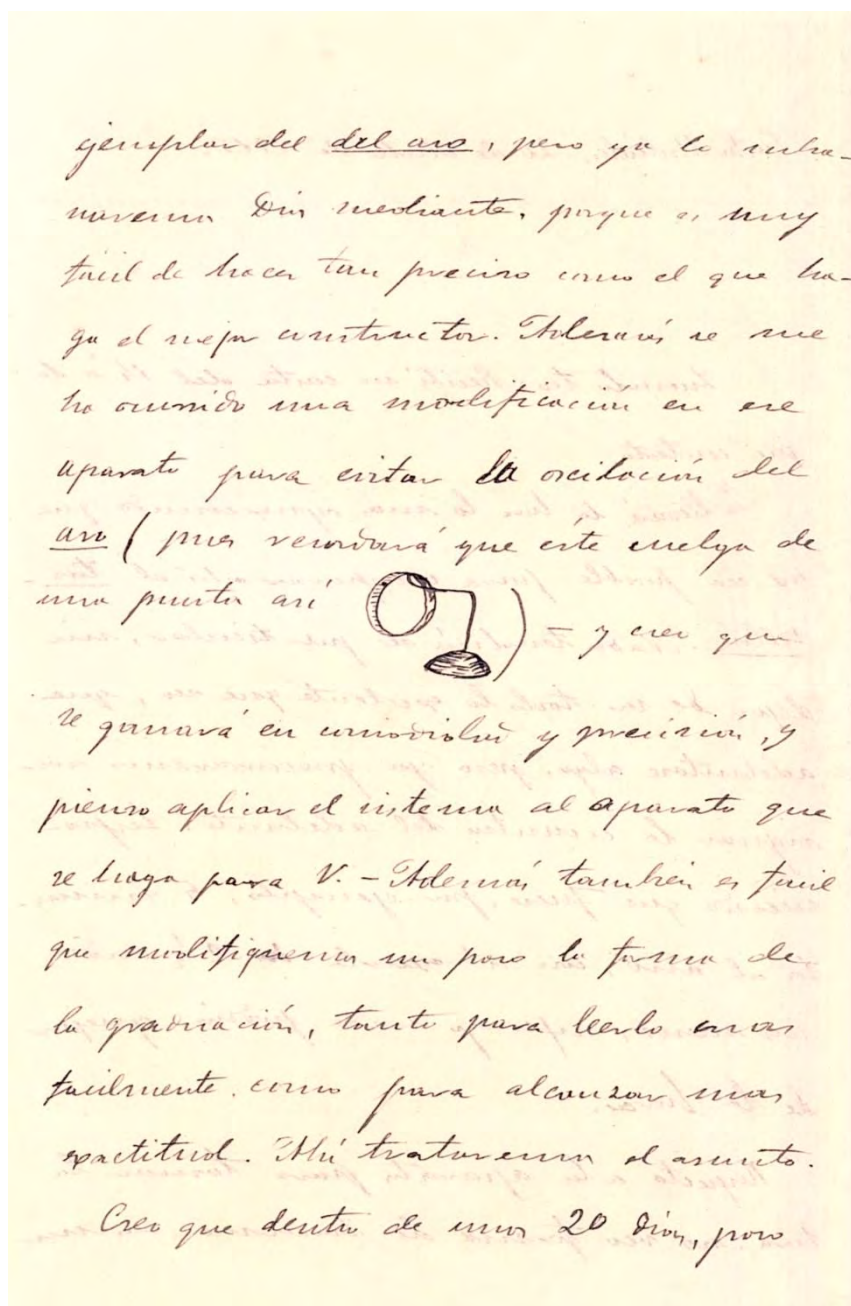 ejemplar del del aro, pero ya lo subsa-
naremos Dios mediante, porque es muy
fácil de hacer tan preciso como el que ha-
ga el mejor constructor. Además se me
ha ocurrido una modificación en ese
aparato para evitar la oscilación del
aro (pues recordará que éste cuelga de
una punta así ) – y creo que
se ganará en comodidad y precisión, y
pienso aplicar el sistema al aparato que
se haga para V. – Además también es facil
que modifiquemos un poco la forma de
la graduación, tanto para leerlo mas
facilmente como para alcanzar mas
exactitud. Ahí trataremos el asunto.
Creo que dentro de unos 20 días, poco